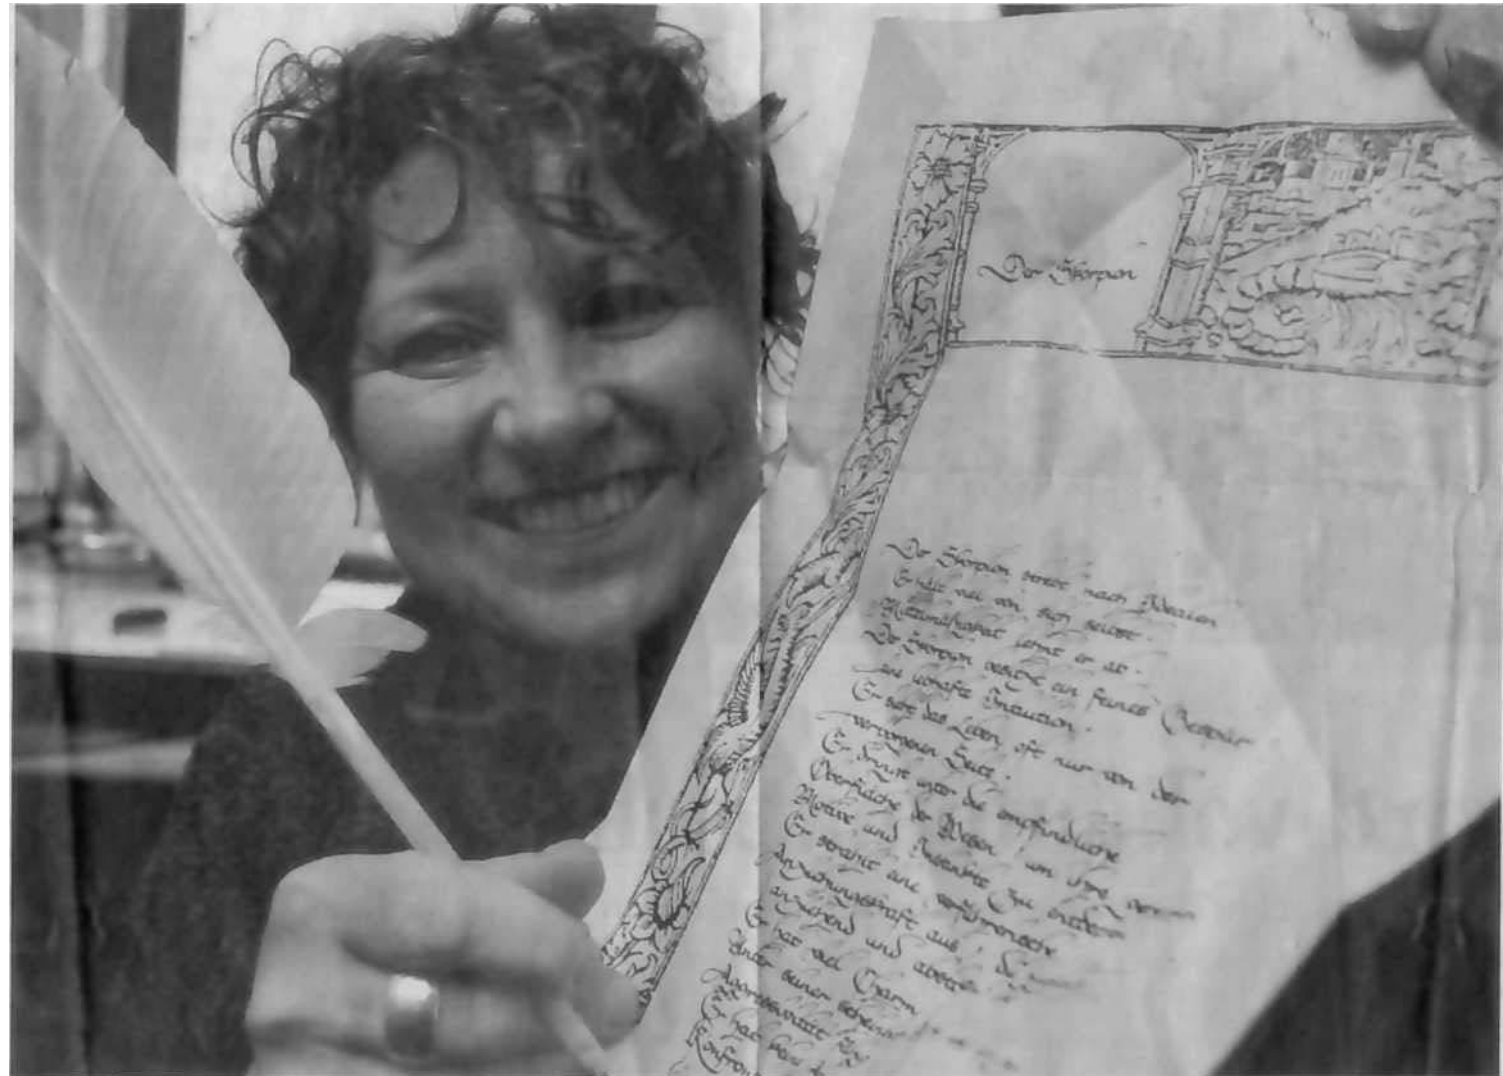 Der Skorpion
Der Skorpion strebt nach Idealen
Er hält viel von sich selbst.
Mittelmäßigkeit lehnt er ab.
Der Skorpion besitzt ein feines Gespür
eine lebhafte Intuition.
Er sieht das Leben oft nur von der
verborgenen Seite.
Er dringt unter die empfindliche
Oberfläche der Wesen, um ihre
Motive und Instinkte zu entdecken
Er strahlt eine verführerische
Anziehungskraft aus, die
anziehend und
Er hat viel Charm
Unter seiner
Er hat